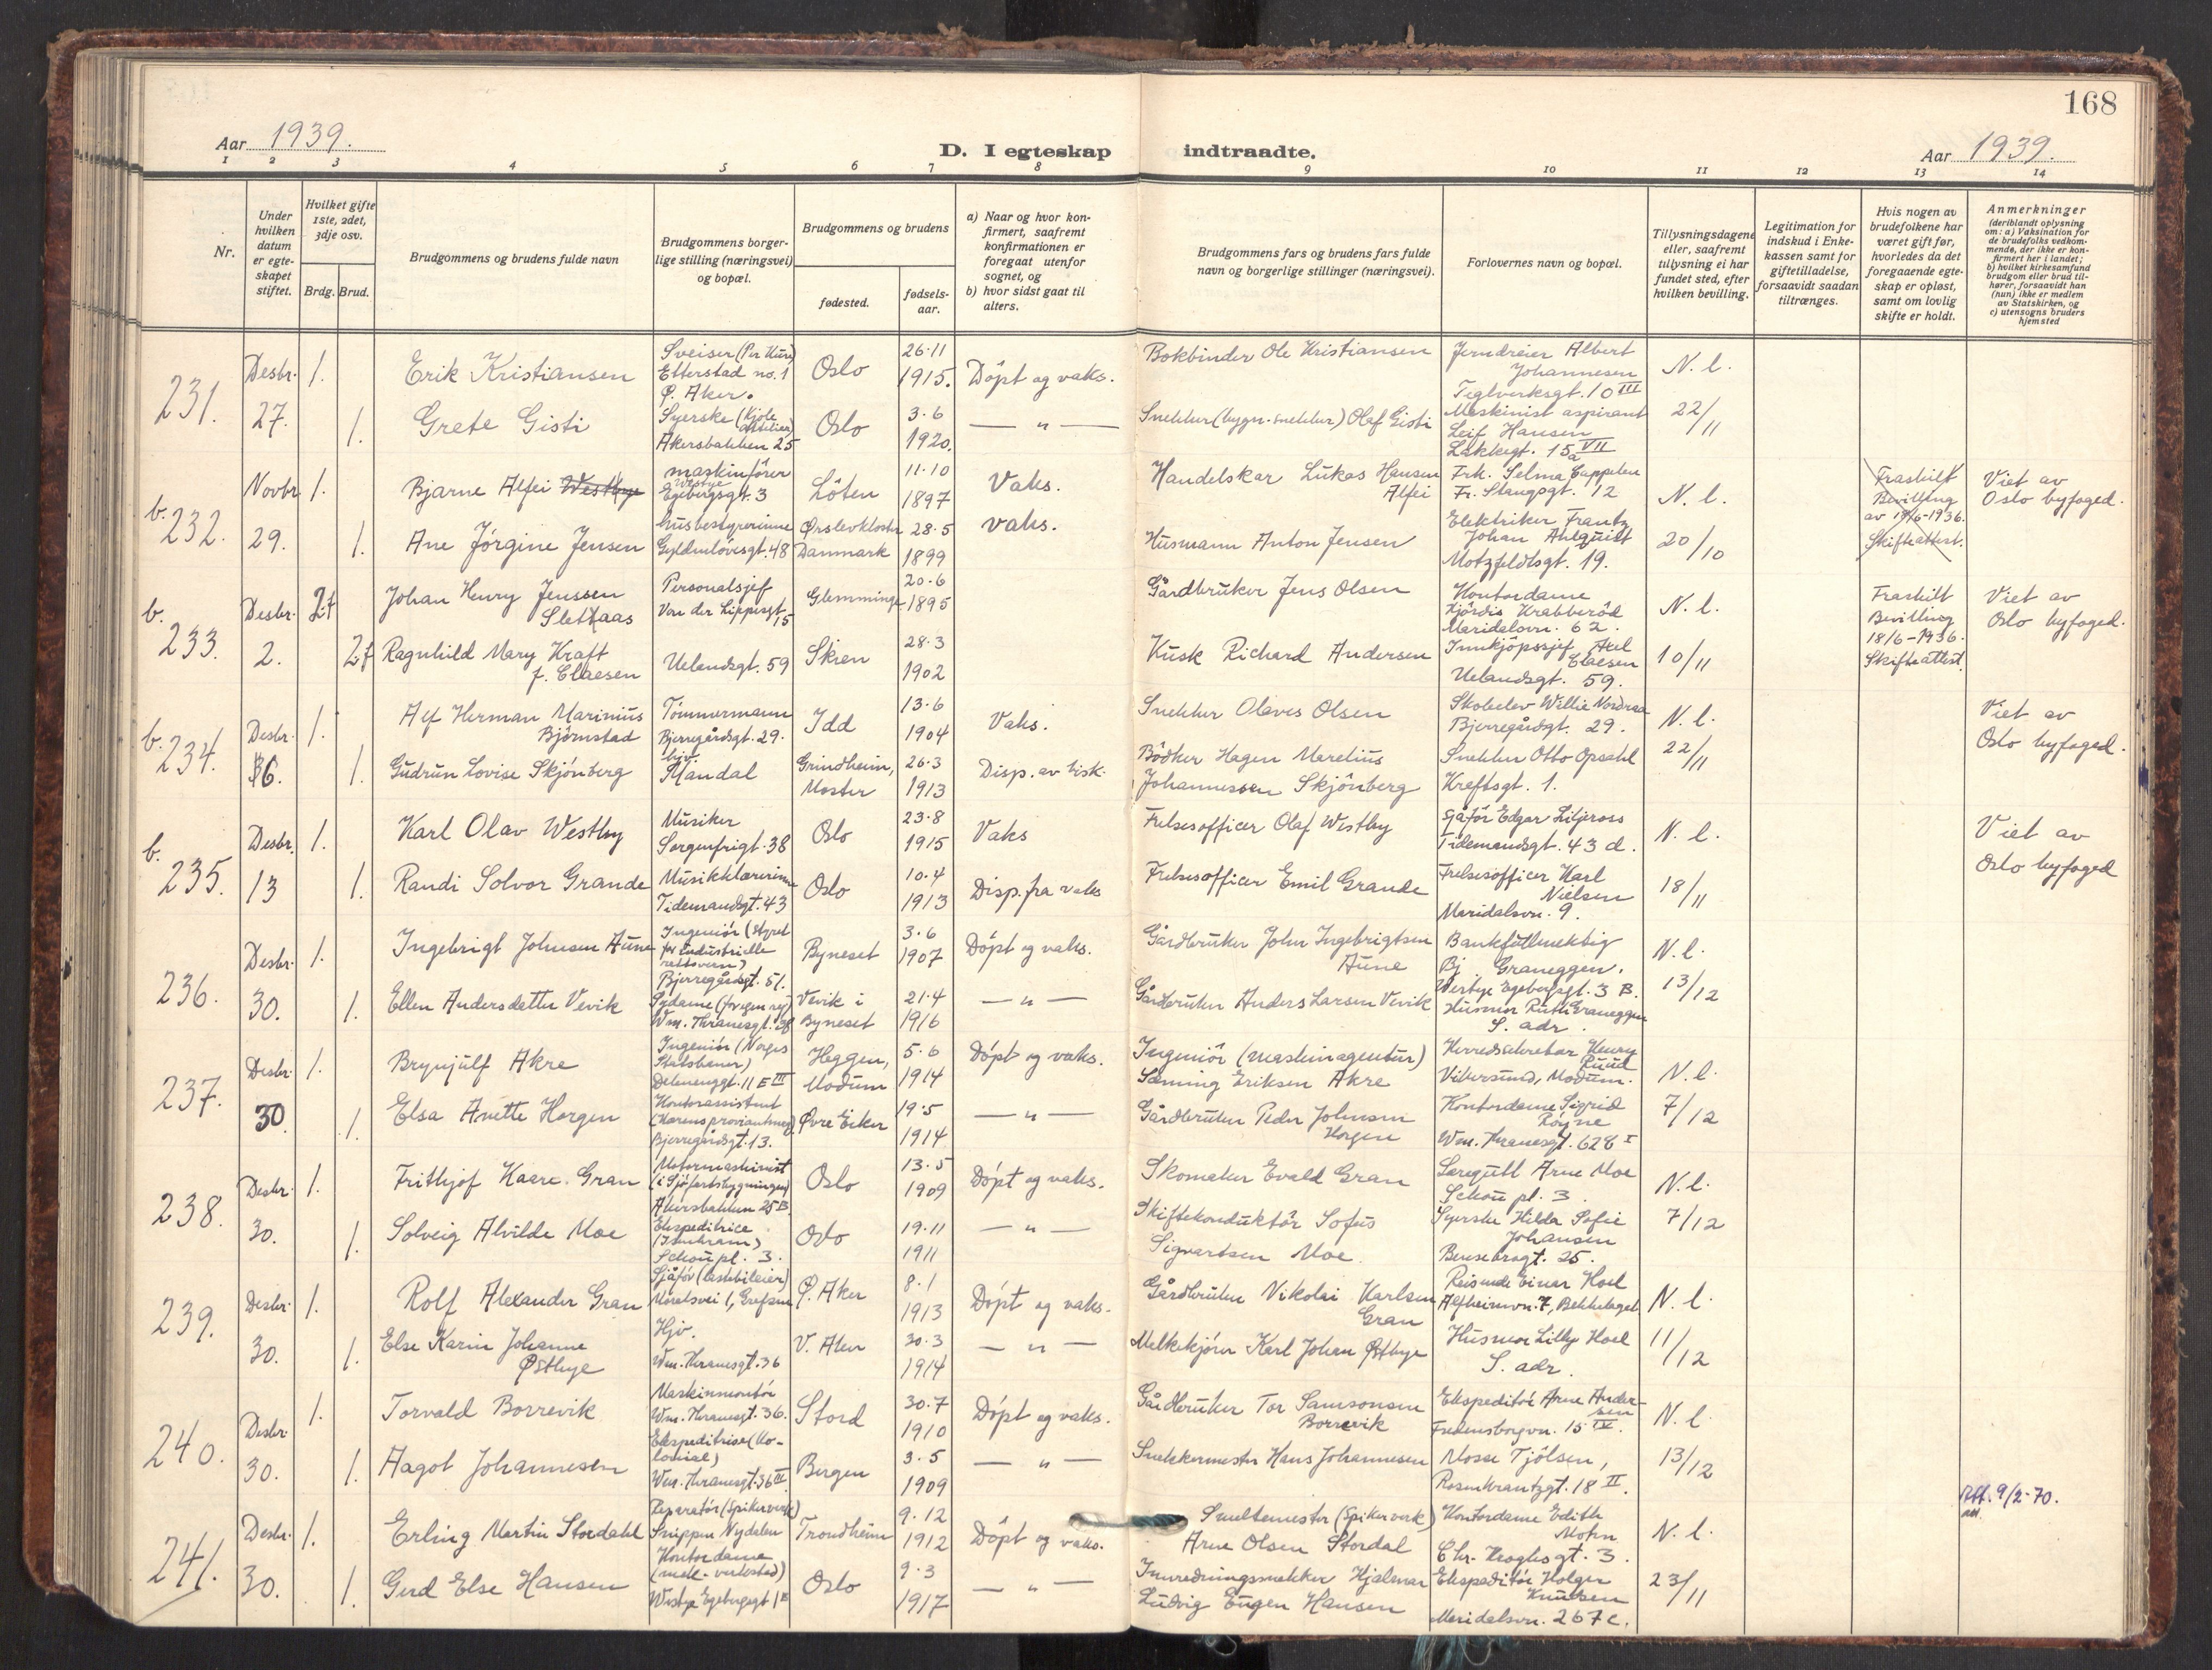 168
Aar 1939.
D. I egteskap indtraadte.
Aar 1939.
1 2 3 4 5 6 7 8 9 10 11 12 13 14
Nr.
Under hvilken datum er egte-skapet stiftet.
Hvilket gifte 1ste, 2det, 3dje osv.
Brdg. Brud.
Brudgommens og brudens fulde navn
Brudgommens borger-lige stilling (næringsvei) og bopæl.
Brudgommens og brudens
fødested.
fødsels-aar.
a) Naar og hvor kon-firmert, saafremt konfirmationen er foregaat utenfor sognet, og
b) hvor sidst gaat til alters.
Brudgommens fars og brudens fars fulde navn og borgerlige stillinger (næringsvei).
Forlovernes navn og bopæl.
Tillysningsdagene eller, saafremt tillysning ei har fundet sted, efter hvilken bevilling.
Legitimation for indskud i Enke-kassen samt for giftetilladelse, forsaavidt saadan tiltrænges.
Hvis nogen av brudefolkene har været gift før, hvorledes da det foregaaende egte-skap er opløst, samt om lovlig skifte er holdt.
Anmerkninger
(deriblandt oplysning om: a) Vaksination for de brudefolks vedkom-mende, der ikke er kon-firmert her i landet; b) hvilket kirkesamfund brudgom eller brud til-hører, forsaavidt han (hun) ikke er medlem av Statskirken, og c) utensogns bruders hjemsted
231. Desbr. 27.
1. Erik Kristiansen
Sveiser (Per Kure)
Etterstad no. 1
Ø. Aker.
Oslo 26-11 1915. Döpt og vaks.
Bokbinder Ole Kristiansen
Jerndreier Albert
Johannesen
Teglverksgt. 10 III
N. l.
1. Grete Gisti
Syerske (Kjole attelier)
Akersbakken 25
Oslo 3-6 1920. — " —
Snekker (bygn. snekker) Olaf Gisti
Maskinist aspirant
Leif Hansen
Lakkegt. 15a VII
22/11
b. 232. Novbr. 29.
1. Bjarne Alfei Westbye
maskinfører
Westye
Egebergsgt. 3
Löten 11-10 1897 Vaks.
Handelskar Lukas Hansen
Alfei
Frk. Selma Cappelen
Fr. Stangsgt. 12
N. l.
Fraskilt
Bevilling
av 18/6-1936.
Skifteattest.
Viet av
Oslo byfoged.
1. Ane Jörgine Jensen
husbestyrerinne
Gyldenlövesgt. 48
Ørslevkloster
Danmark
28-5 1899 vaks.
Husmann Anton Jensen
Elektriker Frantz
Johan Ahlquist
Motzfeldtsgt. 19.
20/10
b. 233. Desbr. 2.
2. Johan Henry Jenssen
Slettaas
Personalsjef
Von der Lippesgt. 15
Glemminge 20-6 1895
Gårdbruker Jens Olsen
Kontordame
Hjördis Krabberöd
Maridalsvn. 62.
N. l.
Fraskilt
Bevilling
18/6-1936.
Skifteattest.
Viet av
Oslo byfoged.
2. Ragnhild Mary Kraft
f. Claesen
Uelandsgt. 59
Skien 28-3 1902
Kusk Richard Andersen
Innkjöpssjef Axel
Claesen
Uelandsgt. 59.
10/11
b. 234. Desbr. 6.
1. Alf Herman Marinius
Björnstad
Tömmermann
Bjerregårdsgt. 29.
Idd 13-6 1904 Vaks.
Snekker Olaves Olsen
Skoleelev Willie Nordraa
Bjerregårdsgt. 29.
N. l.
Viet av
Oslo byfoged.
1. Gudrun Lovise Skjönberg
hjv.
Mandal
Grindheim,
Moster
26-3 1913 Disp. av bisk.
Bödker Hagen Marelius
Johannessen Skjönberg
Snekker Otto Opsahl
Kreftsgt. 1.
22/11
b. 235. Desbr. 13
1. Karl Olav Westby
Musiker
Sorgenfrigt. 38
Oslo 23-8 1915 Vaks
Frelsesofficer Olaf Westby
Sjåför Edgar Liljeross
Tidemandsgt. 43 d.
N. l.
Viet av
Oslo byfoged
1. Randi Solvor Grande
Musikklærerinne
Tidemandsgt. 43
Oslo 10-4 1913 Disp. fra vaks
Frelsesofficer Emil Grande
Frelsesofficer Karl
Nielsen
Maridalsvn. 9.
18/11
236. Desbr. 30.
1. Ingebrigt Johnsen Aune
Ingeniör (Styret
for industrielle
rettsvern)
Bjerregårdsgt. 51.
Byneset 3-6 1907 Döpt og vaks.
Gårdbruker John Ingebrigtsen
Aune
Bankfullmektig
Bj. Graneggen.
Westye Egebergsgt. 3 B.
N. l.
1. Ellen Andersdatter Vevik
Sydame (for egen regn.)
Wm. Thranesgt. 38
Vevik i
Byneset
21-4 1916 — " —
Gårdbruker Anders Larsen Vevik
Husmor Ruth Graneggen
S. adr.
13/12
237. Desbr. 30
1. Brynjulf Akre
Ingeniör (Norges
Statsbaner)
Delenenggt. 11 E III
Heggen,
Modum
5-6 1914 Döpt og vaks.
Ingeniör (maskinagentur)
Sanning Eriksen Akre
Herredsekretær Henry
Ruud
Vikersund, Modum.
N. l.
1. Elsa Anette Horgen
Kontorassistent
Bjerregårdsgt. 13.
Øvre Eiker 19-5 1914 — " —
Gårdbruker Peder Johnsen
Horgen
Kontordame Sigrid
Röyne
Wm. Thranesgt. 62 B I
7/12
238. Desbr. 30.
1. Frithjof Kaare Gran
Motormaskinist
(i Sjöfartsbygningen)
Akersbakken 25 B.
Oslo 13-5 1909 Döpt og vaks.
Skomaker Evald Gran
Laregutt Arne Moe
Schou pl. 3.
N. l.
1. Solveig Alvilde Moe
Ekspeditrice
(Isenkram)
Schou pl. 3.
Oslo 19-11 1911 — " —
Skiftekonduktör Sofus
Sigvartsen Moe.
Syerske Hilda Sofie
Johansen
25.
7/12
239. Desbr. 30.
1. Rolf Alexander Gran
Sjåför (lastebileier)
1, Grefsen
Ø. Aker 8-1 1913 Döpt og vaks.
Gårdbruker Nikolai Karlsen
Gran
Reisende Einar Hoel
Alfheimvn. 7, Bekkelaget
N. l.
1. Else Karin Johanne
Østbye
Hjv.
Wm. Thranesgt. 36
V. Aker 30-3 1914 — " —
Melkekjörer Karl Johan Østbye
Husmor Lilly Hoel
S. adr.
11/12
240. Desbr. 30.
1. Torvald Borrevik
Maskinmontör
Wm. Thranesgt. 36.
Stord 30-7 1910 Döpt og vaks.
Gårdbruker Tor Samsonsen
Borrevik
Ekspeditör Arne Ander-
sen
Fredensborgvn. 15 IV.
N. l.
1. Aagot Johannesen
Ekspeditrise (Ko-
lonial)
Wm. Thranesgt. 36 III
Bergen 3-5 1909 — " —
Snekkermester Hans Johannesen
Mosse Tjölsen,
Rosenkrantzgt. 18 II.
13/12
241. Desbr. 30.
1. Erling Martin Stordahl
Reparatör (Spikerverk)
Snippen Nydalen
Trondheim 9-12 1912 Döpt og vaks.
Smeltemester (Spikerverk)
Arne Olsen Stordal
Kontordame Edith
Mohn
Chr. Kroghsgt. 3.
N. l.
Att. 9/2-70.
1. Gerd Else Hansen
Kontordame
(mek. verksted)
Westye Egebergsgt 1 II
Oslo 9-3 1917 — " —
Innredningssnekker Hjalmar
Ludvig Eugen Hansen
Ekspeditör Holger
Knudsen
Maridalsvn. 267 c.
23/11